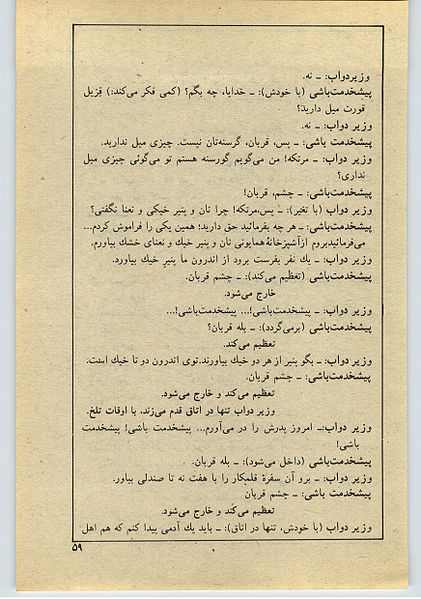 وزیردواب: ــ نه.
پیشخدمت‌باشی (با خودش): ــ خدایا، چه بگم؟ (کمی فکر می‌کند:) قزیل
قورت میل دارید؟
وزیر دواب: ــ نه.
پیشخدمت باشی: ــ پس، قربان، گرسنه‌تان نیست. چیزی میل ندارید.
وزیر دواب: ــ مرتکه! من می‌گویم گورسنه هستم تو می‌گوئی چیزی میل
نداری؟
پیشخدمت‌باشی: ــ چشم، قربان!
وزیر دواب (با تغیر): ــ پس،مرتکه! چرا نان و پنیر خیکی و نعنا نگفتی؟
پیشخدمت‌باشی: ــ هر چه بفرمائید حق دارید! همین یکی را فراموش کردم...
می‌فرمائیدبروم ازآشپزخانهٔ همایونی نان و پنیر خیک و نعنای خشك بیاورم.
وزیر دواب: ــ یك نفر بفرست برود از اندرون ما پنیر خیك بیاورد.
پیشخدمت‌باشی (تعظیم می‌کند): ــ چشم قربان.
خارج می‌شود.
وزیر دواب: ــ پیشخدمت‌باشی!... پیشخدمت‌باشی!...
پیشخدمت‌باشی (برمی‌گردد): ــ بله قربان؟
تعظیم می‌کند.
وزیر دواب: ــ بگو پنیر از هر دو خیك بیاورند.توی اندرون دو تا خیك است.
پیشخدمت‌باشی: ــ چشم قربان.
تعظیم می‌کند و خارج می‌شود.
وزیر دواب تنها در اتاق قدم می‌زند، با اوقات تلخ.
وزیر دواب:ــ امروز پدرش را در می‌آورم... پیشخدمت باشی! پیشخدمت
باشی!
پیشخدمت‌باشی (داخل می‌شود): ــ بله قربان.
وزیر دواب: ــ برو آن سفرهٔ قلمکار را با هفت نه تا صندلی بیاور.
پیشخدمت باشی: ــ چشم قربان
تعظیم می‌کند و خارج می‌شود.
وزیر دواب (با خودش، تنها در اتاق): ــ باید یك آدمی پیدا کنم که هم اهل
۵۹